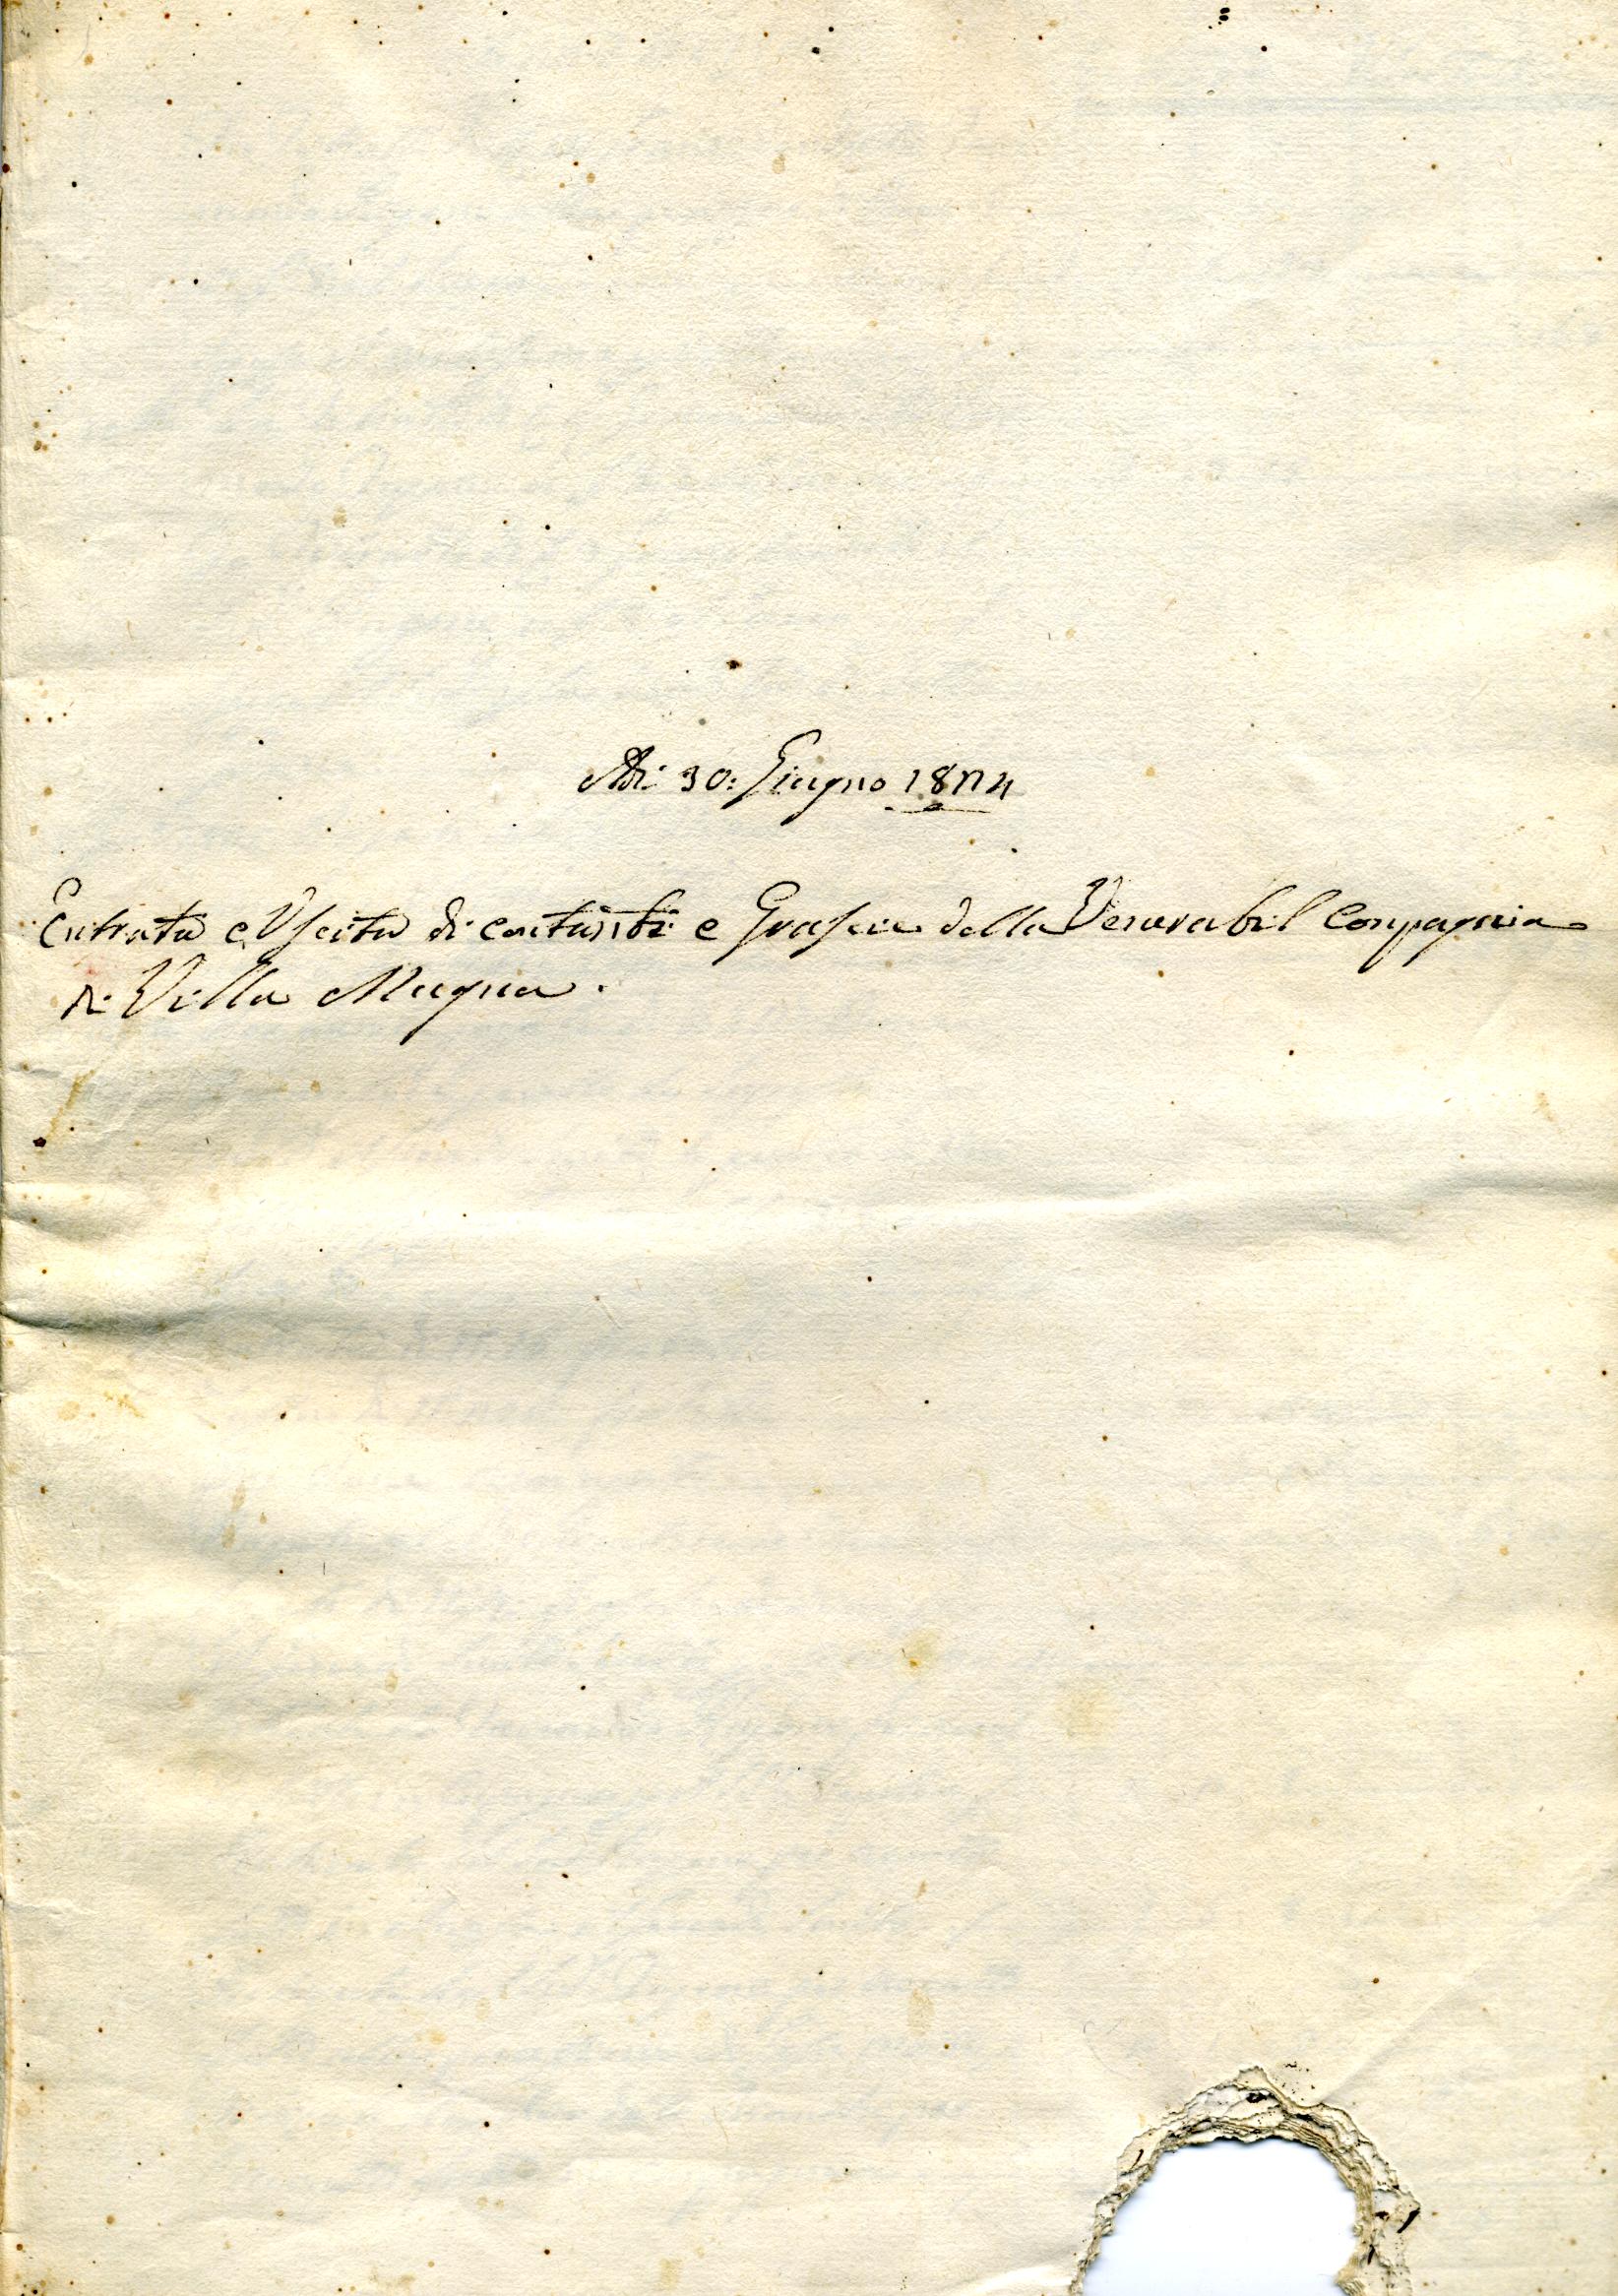 Adi 30: Giugno
Entrata e Uscita di contanti e Grascie della Venerabil Compagnia
di Villa Magna.